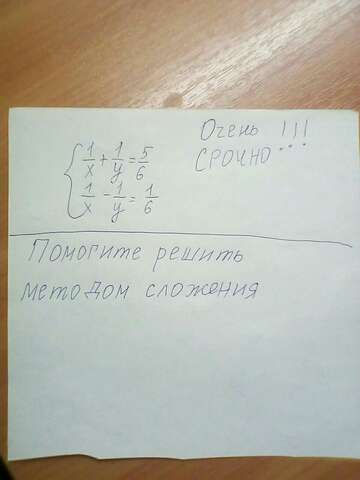 1/x + 1/y = 5/6
1/x - 1/y = 1/6
Очень !!!
СРОЧНО...
Помогите решить
методом сложения